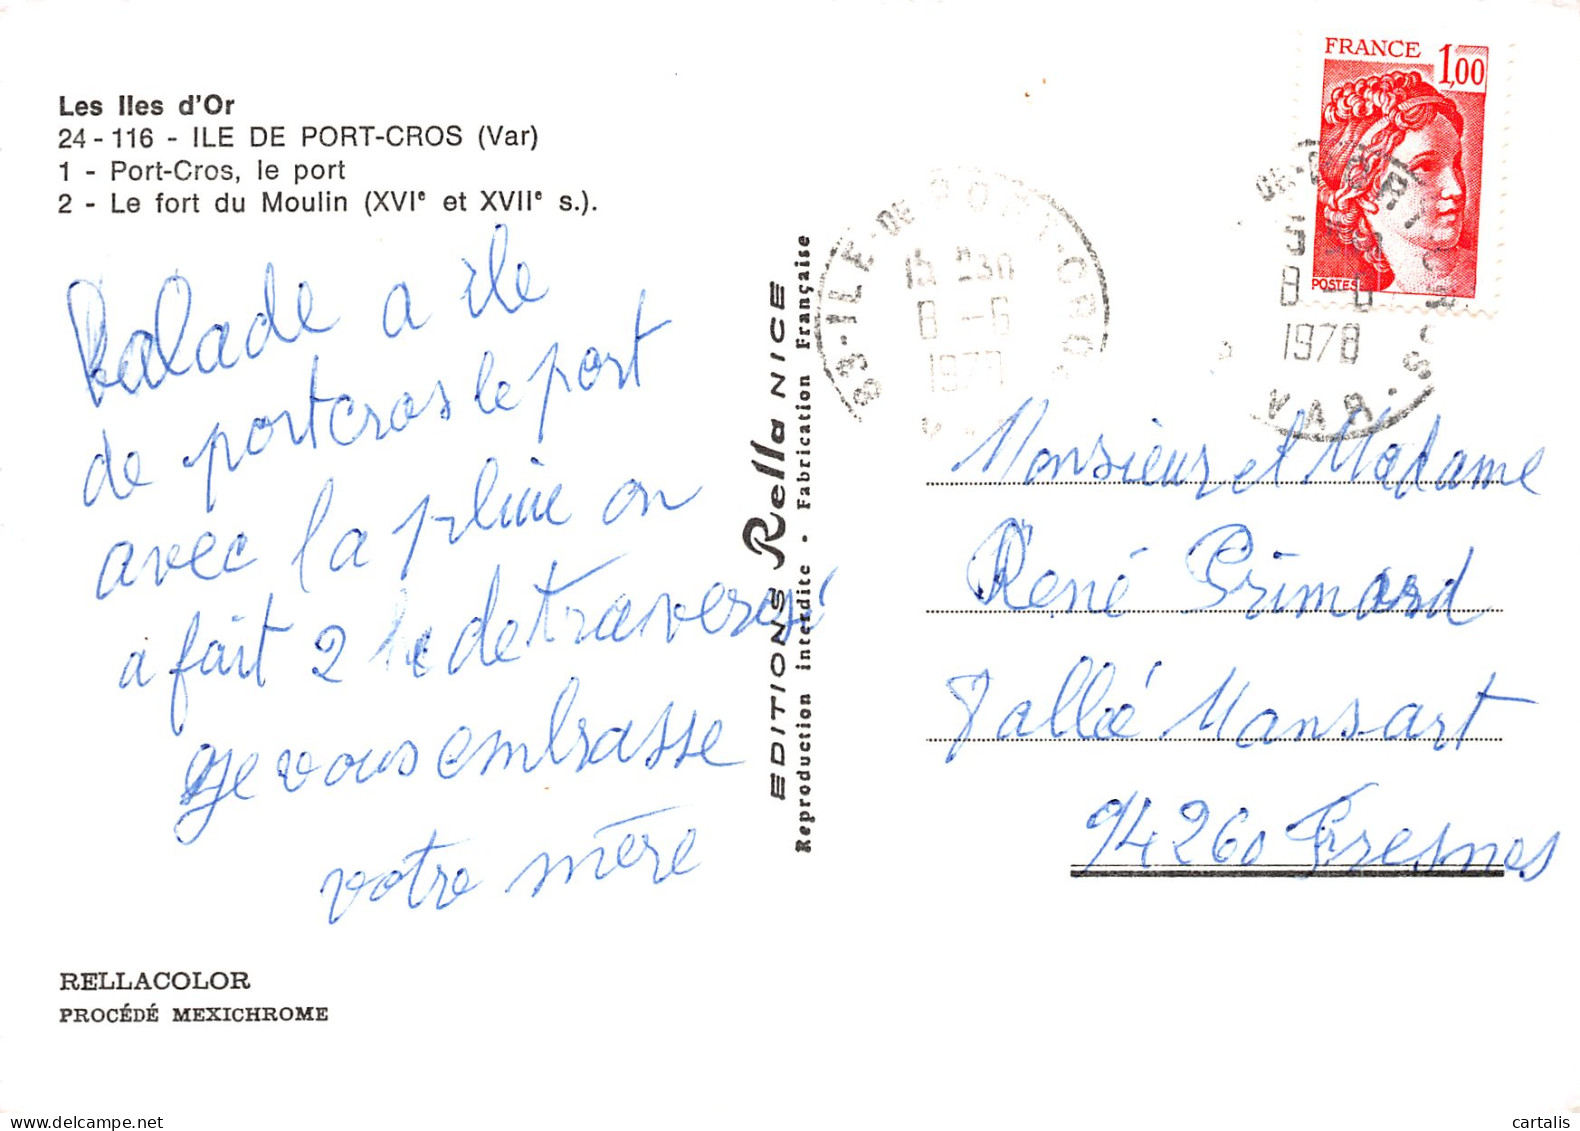 Les Iles d'Or
24 - 116 - ILE DE PORT-CROS (Var)
1 - Port-Cros, le port
2 - Le fort du Moulin (XVIe et XVIIe s.).
balade a ile
de portcros le port
avec la pluie on
a fait 2 de traversé
je vous embrasse
votre mère
RELLACOLOR
PROCÉDÉ MEXICHROME
EDITIONS Rella NICE
Reproduction interdite - Fabrication Française
83-ILE-DE-PORT-CROS
8 -6
1978
FRANCE 1,00
POSTES
DE-PORT-CROS
8 -6
1978
VAR
Monsieur et Madame
René Grimard
Vallée Mansart
94260 Fresnes
cartalis